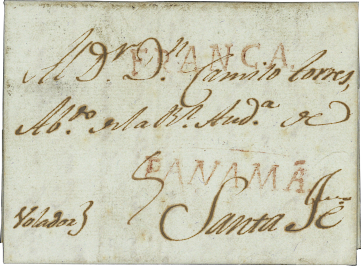 FRANCA
Al D.r D.n Camilo Torres,
Abo.do de la Rl. Aud.a de
PANAMÁ
Santa Fé
Volador